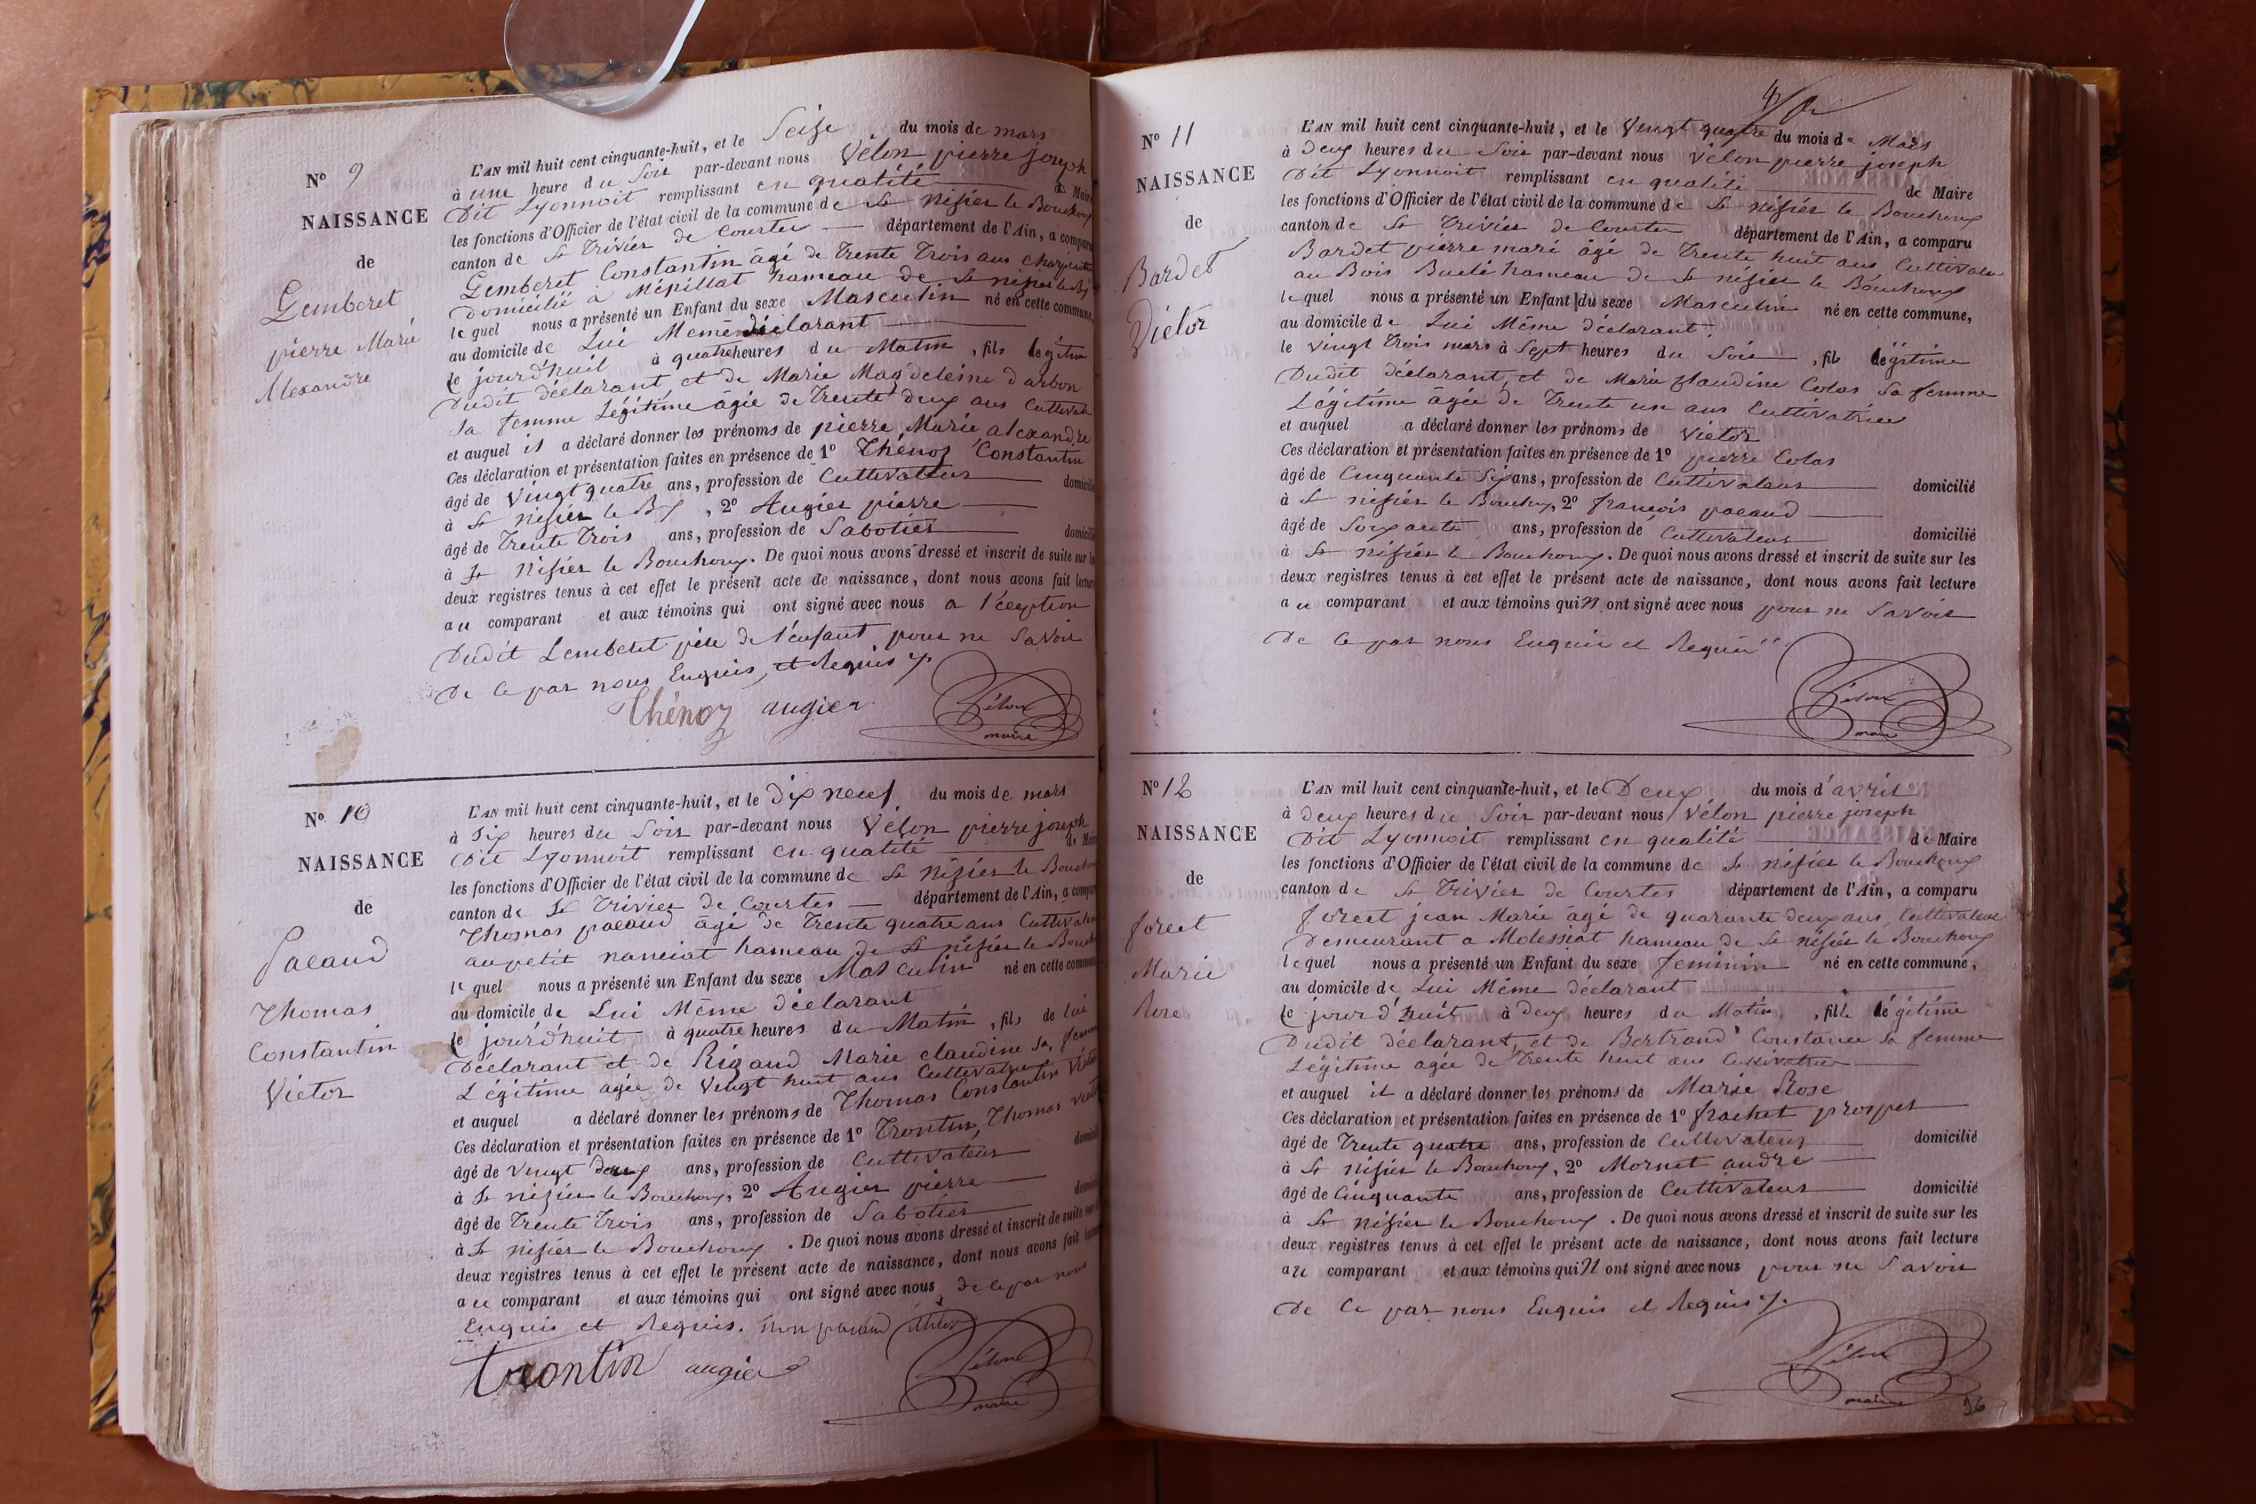 N° 9
NAISSANCE
de
Gemberet
pierre Marie
Alexandre
L'AN mil huit cent cinquante-huit, et le Seize du mois de mars
à une heure du Soir par-devant nous Vélon pierre joseph
Dit Lyonnoit remplissant en qualité de Maire
les fonctions d'Officier de l'état civil de la commune de St nisier le Bouchoux
canton de St Trivier de Courtes département de l'Ain, a comparu
Gemberet Constantin âgé de Trente Trois ans charpentier
Domicilié à Mépillat hameau de St nisier le Bx
lequel nous a présenté un Enfant du sexe Masculin né en cette commune,
au domicile de Lui Meme déclarant
le jourd'huil à quatre heures du Matin, fils légitime
Dudit déclarant et de Marie Magdeleine Darbon
Sa femme Légitime âgée de Trente deux ans Cultivat
et auquel il a déclaré donner les prénoms de pierre Marie alexandre
Ces déclaration et présentation faites en présence de 1° Thénoz Constantin
âgé de Vingt quatre ans, profession de Cultivateur domicilié
à St nisier le Bx, 2° Augier pierre
âgé de Trente Trois ans, profession de Sabotier domicilié
à St Nisier le Bouchoux. De quoi nous avons dressé et inscrit de suite sur les
deux registres tenus à cet effet le présent acte de naissance, dont nous avons fait lecture
au comparant et aux témoins qui ont signé avec nous a l'éception
Dudit Lemberet père de l'enfant pour ne Savoir
De Ce par nous Enquis et Requis
Thénoz augier Vélon
maire
N° 10
NAISSANCE
de
Pacaud
Thomas
Constantin
Victor
L'AN mil huit cent cinquante-huit, et le Dix neuf du mois de mars
à Six heures du Soir par-devant nous Vélon pierre joseph
Dit Lyonnoit remplissant en qualité de Maire
les fonctions d'Officier de l'état civil de la commune de St Nisier le Bouchoux
canton de St Trivier de Courtes département de l'Ain, a comparu
Thomas pacaud âgé de Trente quatre ans Cultivateur
au petit nanciat hameau de St nisier le Bouchoux
lequel nous a présenté un Enfant du sexe Masculin né en cette commune
au domicile de Lui Même déclarant
le jourd'huit à quatre heures du Matin, fils de lui
Déclarant et de Rigaud Marie claudine sa femme
Légitime agée de Vingt huit ans Cultivatrice
et auquel a déclaré donner les prénoms de Thomas Constantin Victor
Ces déclaration et présentation faites en présence de 1° Trontin, Thomas
âgé de Vingt deux ans, profession de Cultivateur domicilié
à St nizier le Bouchoux, 2° Augier pierre
âgé de Trente Trois ans, profession de Sabotier
à St nisier le Bouchoux. De quoi nous avons dressé et inscrit de suite sur les
deux registres tenus à cet effet le présent acte de naissance, dont nous avons fait lecture
au comparant et aux témoins qui ont signé avec nous de ce par nous
Enquis et Requis. non pacaud
trontin augier Vélon
maire
N° 11
NAISSANCE
de
Bardet
Victor
L'AN mil huit cent cinquante-huit, et le Vingt quatre du mois de Mars
à Deux heures du Soir par-devant nous Vélon pierre joseph
Dit Lyonnoit remplissant en qualité de Maire
les fonctions d'Officier de l'état civil de la commune de St nisier le Bouchoux
canton de St Trivier de Courtes département de l'Ain, a comparu
Bardet pierre marie âgé de Trente huit ans Cultivateur
au Bois hameau de St nisier le Bouchoux
lequel nous a présenté un Enfant du sexe Masculin né en cette commune,
au domicile de Lui Même déclarant
le vingt Trois mars à Sept heures du Soir, fils légitime
Dudit déclarant, et de Marie Claudine Colas Sa femme
Légitime âgée de Trente un ans Cultivatrice
et auquel a déclaré donner les prénoms de Victor
Ces déclaration et présentation faites en présence de 1° pierre Colas
âgé de Cinquante Six ans, profession de Cultivateur domicilié
à St nisier le Bouchoux, 2° françois pacaud
âgé de Soixante ans, profession de Cultivateur domicilié
à St nisier le Bouchoux. De quoi nous avons dressé et inscrit de suite sur les
deux registres tenus à cet effet le présent acte de naissance, dont nous avons fait lecture
au comparant et aux témoins qui N ont signé avec nous pour ne Savoir
De Ce par nous Enquis et Requis
Vélon
maire
N° 12
NAISSANCE
de
foreet
Marie
Rose
L'AN mil huit cent cinquante-huit, et le Deux du mois d'avril
à Deux heures du Soir par-devant nous Vélon pierre joseph
Dit Lyonnoit remplissant en qualité de Maire
les fonctions d'Officier de l'état civil de la commune de St nisier le Bouchoux
canton de St Trivier de Courtes département de l'Ain, a comparu
foreet jean Marie âgé de quarante deux ans, Cultivateur
Demeurant a Molessiat hameau de St nisier le Bouchoux
lequel nous a présenté un Enfant du sexe feminin né en cette commune,
au domicile de Lui Même déclarant
le jour d'huit à Deux heures du Matin, fille légitime
Dudit déclarant, et de Bertrand Constance Sa femme
Légitime agée de Trente huit ans Cultivatrice
et auquel il a déclaré donner les prénoms de Marie Rose
Ces déclaration et présentation faites en présence de 1° frachet prosper
âgé de Trente quatre ans, profession de Cultivateur domicilié
à St nisier le Bouchoux, 2° Mornet andre
âgé de Cinquante ans, profession de Cultivateur domicilié
à St nisier le Bouchoux. De quoi nous avons dressé et inscrit de suite sur les
deux registres tenus à cet effet le présent acte de naissance, dont nous avons fait lecture
au comparant et aux témoins qui N ont signé avec nous pour ne Savoir
De Ce par nous Enquis et Requis
Vélon
maire